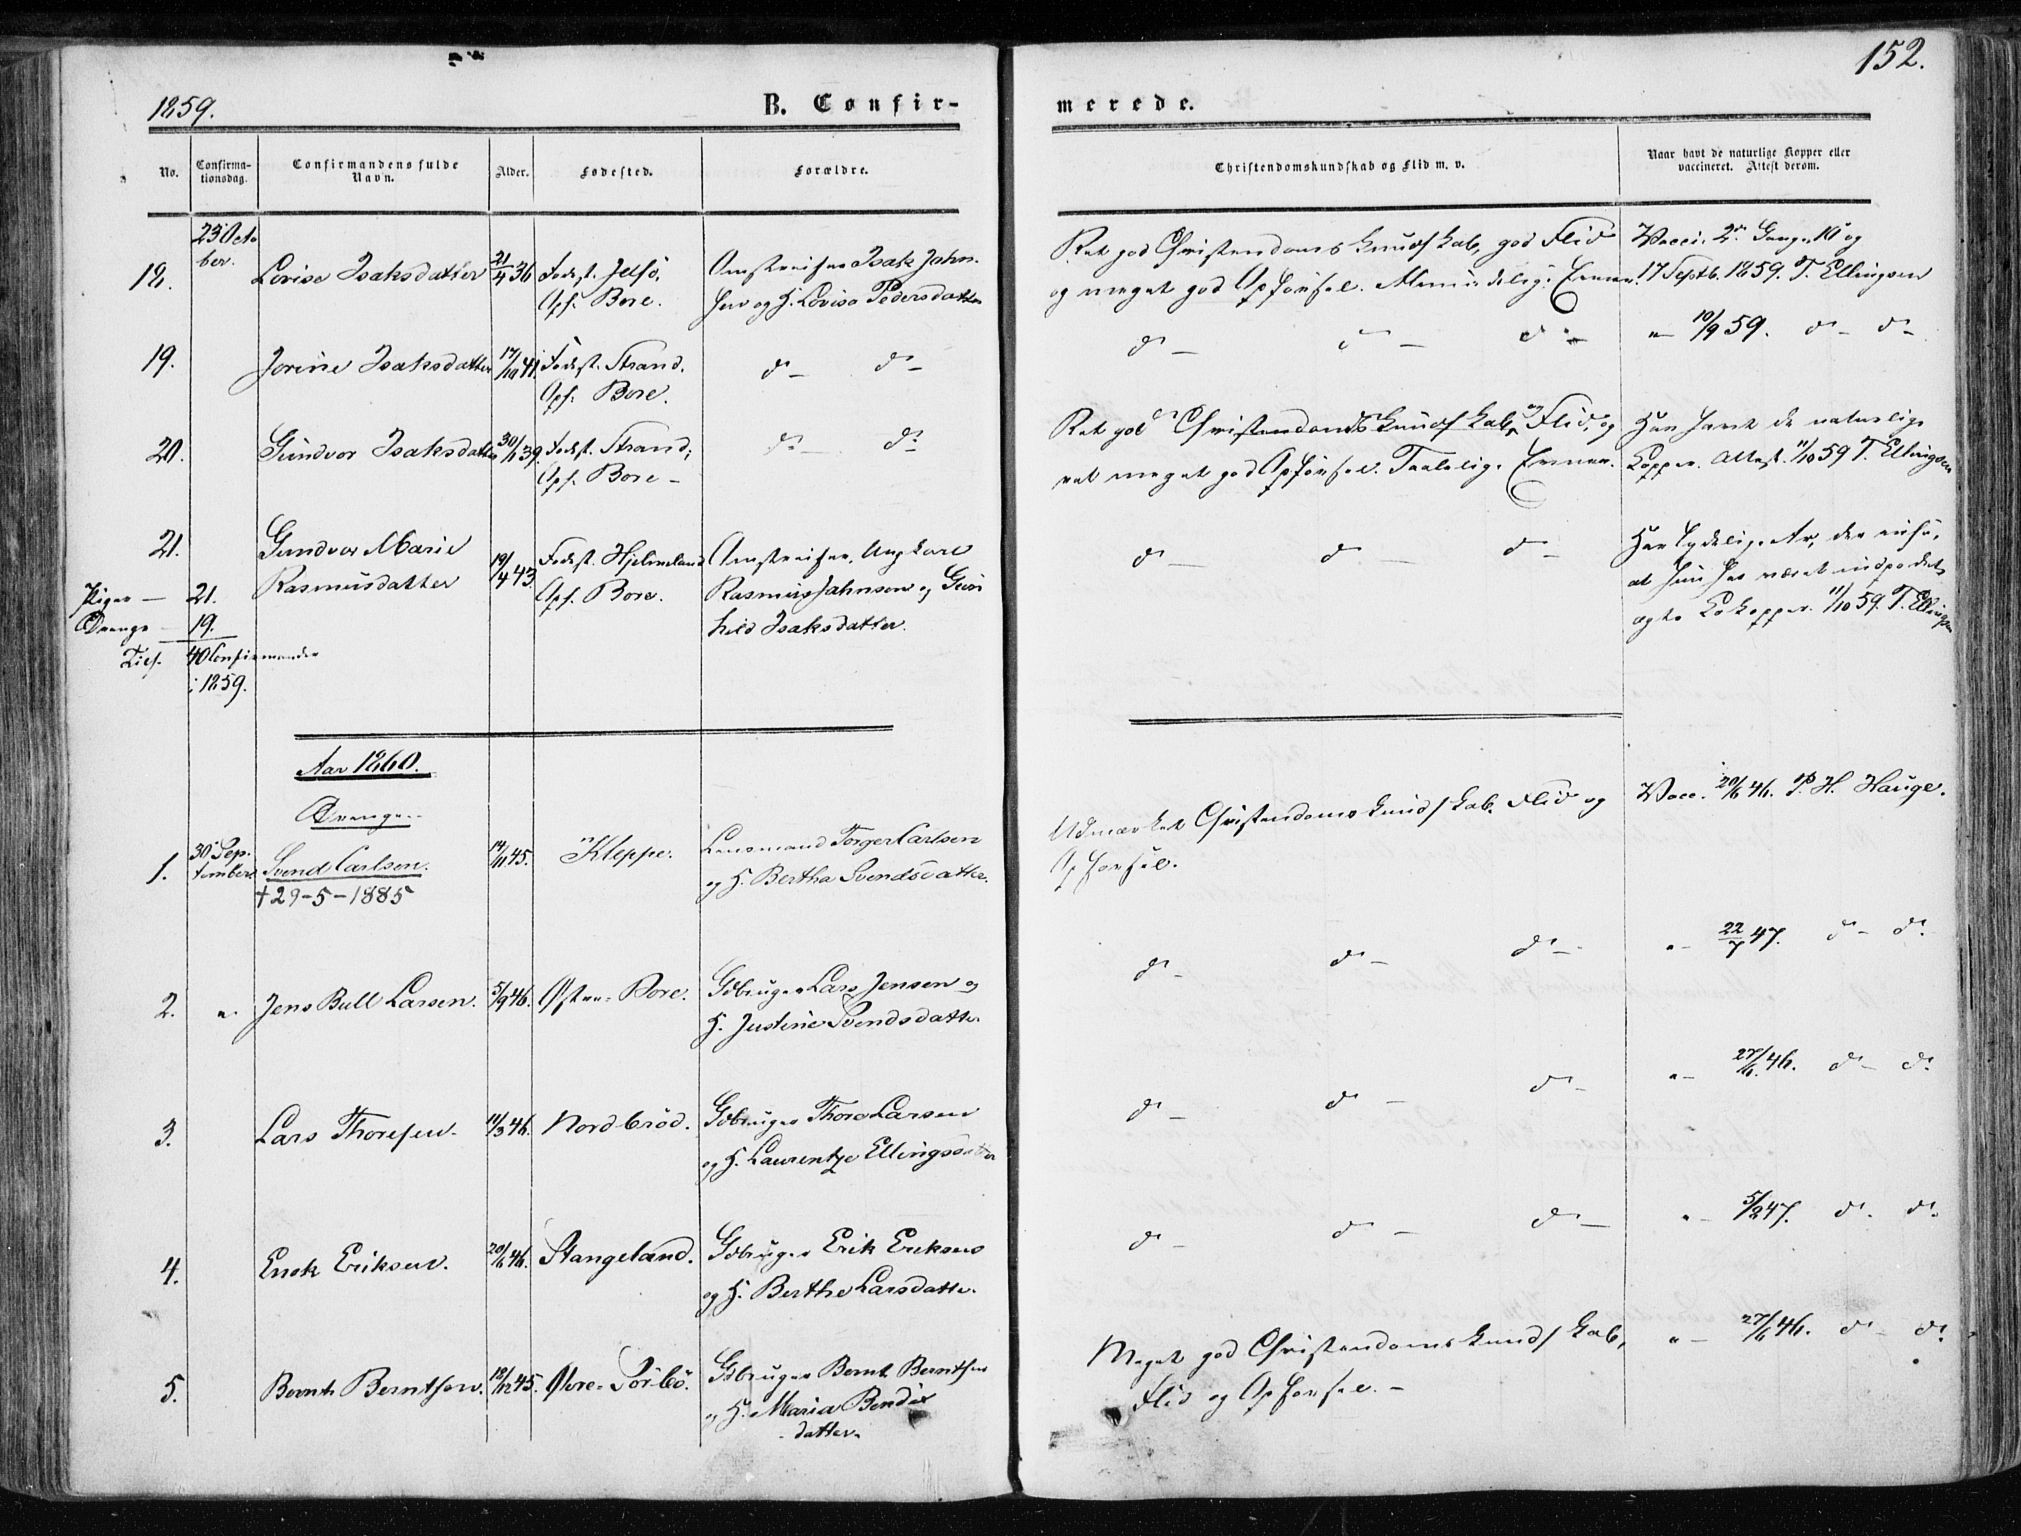 152.
1859.
B. Confir-
merede.
No.
Confirma-
tionsdag.
Confirmandens fulde
Navn.
Alder.
Fødested.
Forældre.
Christendomskundskab og Flid m. v.
Naar havt de naturlige Kopper eller
vaccineret. Attest derom.
23 Octo
ber.
18. Lovise Isaksdatter 21/4 36 Fødest. Jelsø,
Opf. Bore.
Omstreifer Isak John-
sen og H. Lovisa Pedersdatter
Ret god Christendomskundskab, god Flid
og meget god Opførsel.
Vacci. 2den Gang. 10 og
17 Septb. 1859. T. Ellingsen
19. Jorine Isaksdatter 17/10 41. Fødest. Strand.
Opf. Bore.
do - do -
do - do - do -
" - 10/9 59. do - do -
20. Gundvor Isaksdatter 30/1 39. Fødest. Strand;
Opf. Bore -
do - do
Ret god Christendomskundskab, og Flid, og
ret meget god Opførsel. Taalelig Evner.
Har havt de naturlige
Kopper. Attest. 11/10 59 T. Ellingsen
21. Gundvor Marie
Rasmusdatter
19/4 43. Fødest. Hjelmeland
Opf. Bore.
Omstreifer, Ungkarl
Rasmus Johnsen og Guri
hild Isaksdatter.
do - do - do -
Har tydelige Ar, der viser,
at hun har været indpodet
ægte Kokopper. 11/10 59. T. Ellingsen
Piger - 21.
Drenge - 19.
Tils. 40 Confirmander
i 1859.
Aar 1860.
Drenge.
1. 30 Sep-
tember.
Svend Carlsen.
† 29-5-1885
14/11 45. Kleppe.
Lensmand Torger Carlsen
og H. Bertha Svendsdatter.
Udmærket Christendomskundskab. Flid og
Opførsel.
Vacc. 20/6 46. P. H. Hauge.
2. " Jens Bull Larsen. 5/9 46. Østre-Bore.
Gdbruger Lars Jensen og
H. Justine Svendsdatter
do - do - do -
" - 22/7 47. do - do
3. Lars Thoresen. 11/3 46. Nordbrød.
Gdbruger Thore Larsen
og H. Laurentze Ellingsdatter
do - do - do -
" - 27/6 46. do - do
4. Enok Eriksen. 20/6 46. Stangeland.
Gdbruger Erik Eriksen
og H. Berthe Larsdatter.
do - do - do -
" - 5/2 47. do do
5. Bernt Berntsen. 18/12 45. Øvre-Sørbø.
Gdbruger Bernt Berntsen
og H. Maria Bendix
datter.
Meget god Christendomskundskab,
Flid og Opførsel. -
" - 27/6 46. do - do